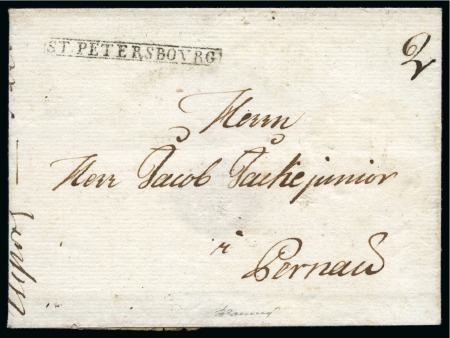 ST. PETERSBOVRG
2
Herrn
Herr Jacob Jacke junior
à
Pernau